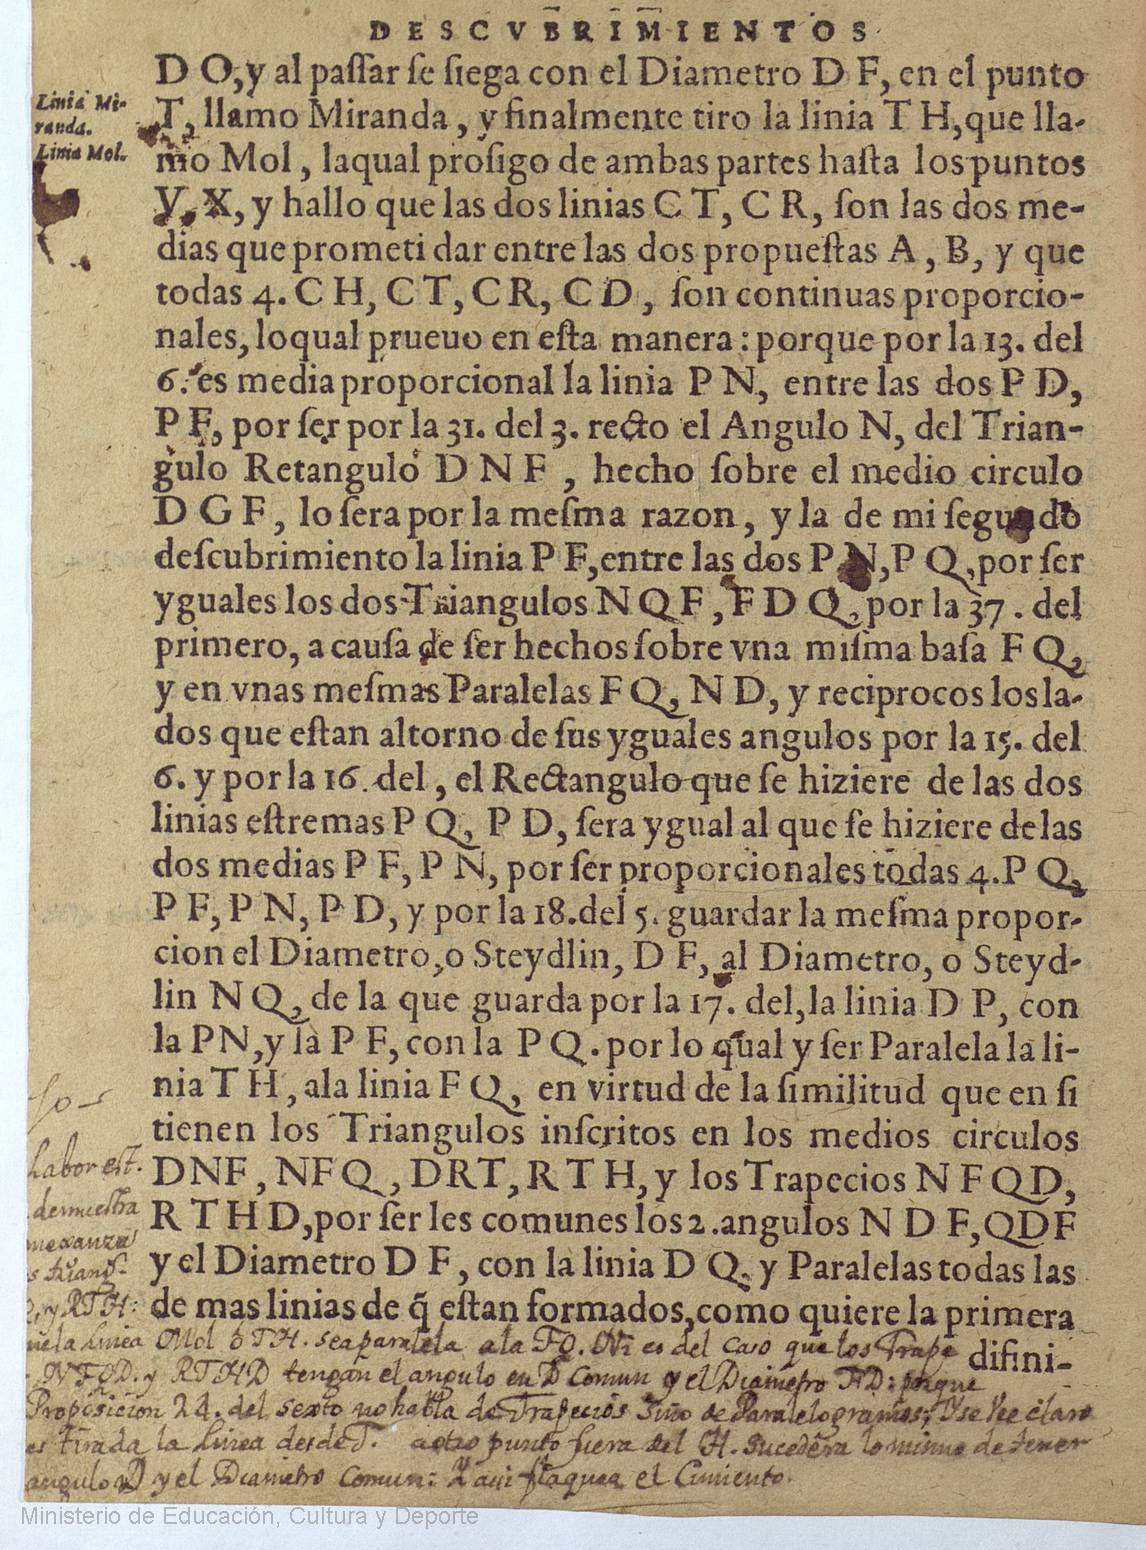 DESCVBRIMIENTOS
D O, y al paſſar ſe ſiega con el Diametro D F, en el punto
Linia Mi-
randa.
Linia Mol.
T, llamo Miranda, y finalmente tiro la linia T H, que lla-
mo Mol, laqual proſigo de ambas partes haſta los puntos
V, X, y hallo que las dos linias C T, C R, ſon las dos me-
dias que prometi dar entre las dos propueſtas A, B, y que
todas 4. C H, C T, C R, C D, ſon continuas proporcio-
nales, loqual prueuo en eſta manera: porque por la 13. del
6. es media proporcional la linia P N, entre las dos P D,
P F, por ſer por la 31. del 3. recto el Angulo N, del Trian-
gulo Retangulo D N F, hecho ſobre el medio circulo
D G F, lo ſera por la meſma razon, y la de mi ſegundo
deſcubrimiento la linia P F, entre las dos P N, P Q, por ſer
yguales los dos Triangulos N Q F, F D Q, por la 37. del
primero, a cauſa de ſer hechos ſobre vna miſma baſa F Q,
y en vnas meſmas Paralelas F Q, N D, y reciprocos los la-
dos que eſtan altorno de ſus yguales angulos por la 15. del
6. y por la 16. del, el Rectangulo que ſe hiziere de las dos
linias eſtremas P Q, P D, ſera ygual al que ſe hiziere de las
dos medias P F, P N, por ſer proporcionales todas 4. P Q,
P F, P N, P D, y por la 18. del 5. guardar la meſma propor-
cion el Diametro, o Steydlin, D F, al Diametro, o Steyd-
lin N Q, de la que guarda por la 17. del, la linia D P, con
la P N, y la P F, con la P Q. por lo qual y ſer Paralela la li-
nia T H, ala linia F Q, en virtud de la ſimilitud que en ſi
tienen los Triangulos inſcritos en los medios circulos
DNF, NFQ, DRT, R T H, y los Trapecios N F Q D,
R T H D, por ſer les comunes los 2. angulos N D F, QDF
y el Diametro D F, con la linia D Q, y Paralelas todas las
de mas linias de q̃ eſtan formados, como quiere la primera
difini-
Labor est.
demuestra
y RTH:
la Linea Mol o TH. sea paralela a la FQ. Ni es del caso que los Trape
NFQD. y RTHD tengan el angulo en D comun y el Diametro FD: porque
Proposicion 24. del sexto no habla de Trapecios sino de Paralelogramos; y se vee claro
tirada la Linea desde T. a otro punto fuera del H. sucedera lo mismo de tener
angulo D y el Diametro comun: y aqui flaquea el Cimiento.
Ministerio de Educación, Cultura y Deporte